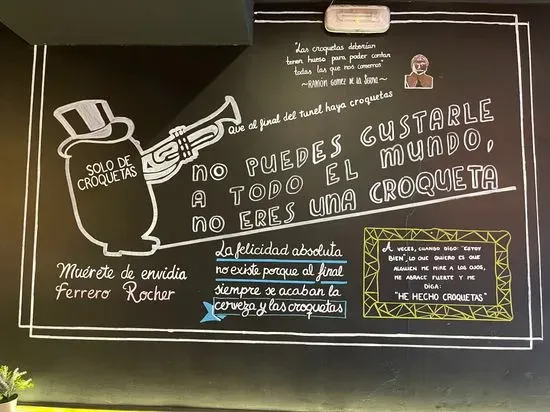 "Las croquetas deberían
tener hueso para poder contar
todas las que nos comemos"
~RAMÓN GOMEZ DE LA SERNA~
que al final del tunel haya croquetas
SOLO DE
CROQUETAS
NO PUEDES GUSTARLE
A TODO EL MUNDO,
NO ERES UNA CROQUETA
Muérete de envidia
Ferrero Rocher
La felicidad absoluta
no existe porque al final
siempre se acaban la
cerveza y las croquetas
A VECES, CUANDO DIGO: "ESTOY
BIEN", LO QUE QUIERO ES QUE
ALGUIEN ME MIRE A LOS OJOS,
ME ABRACE FUERTE Y ME
DIGA:
"HE HECHO CROQUETAS"